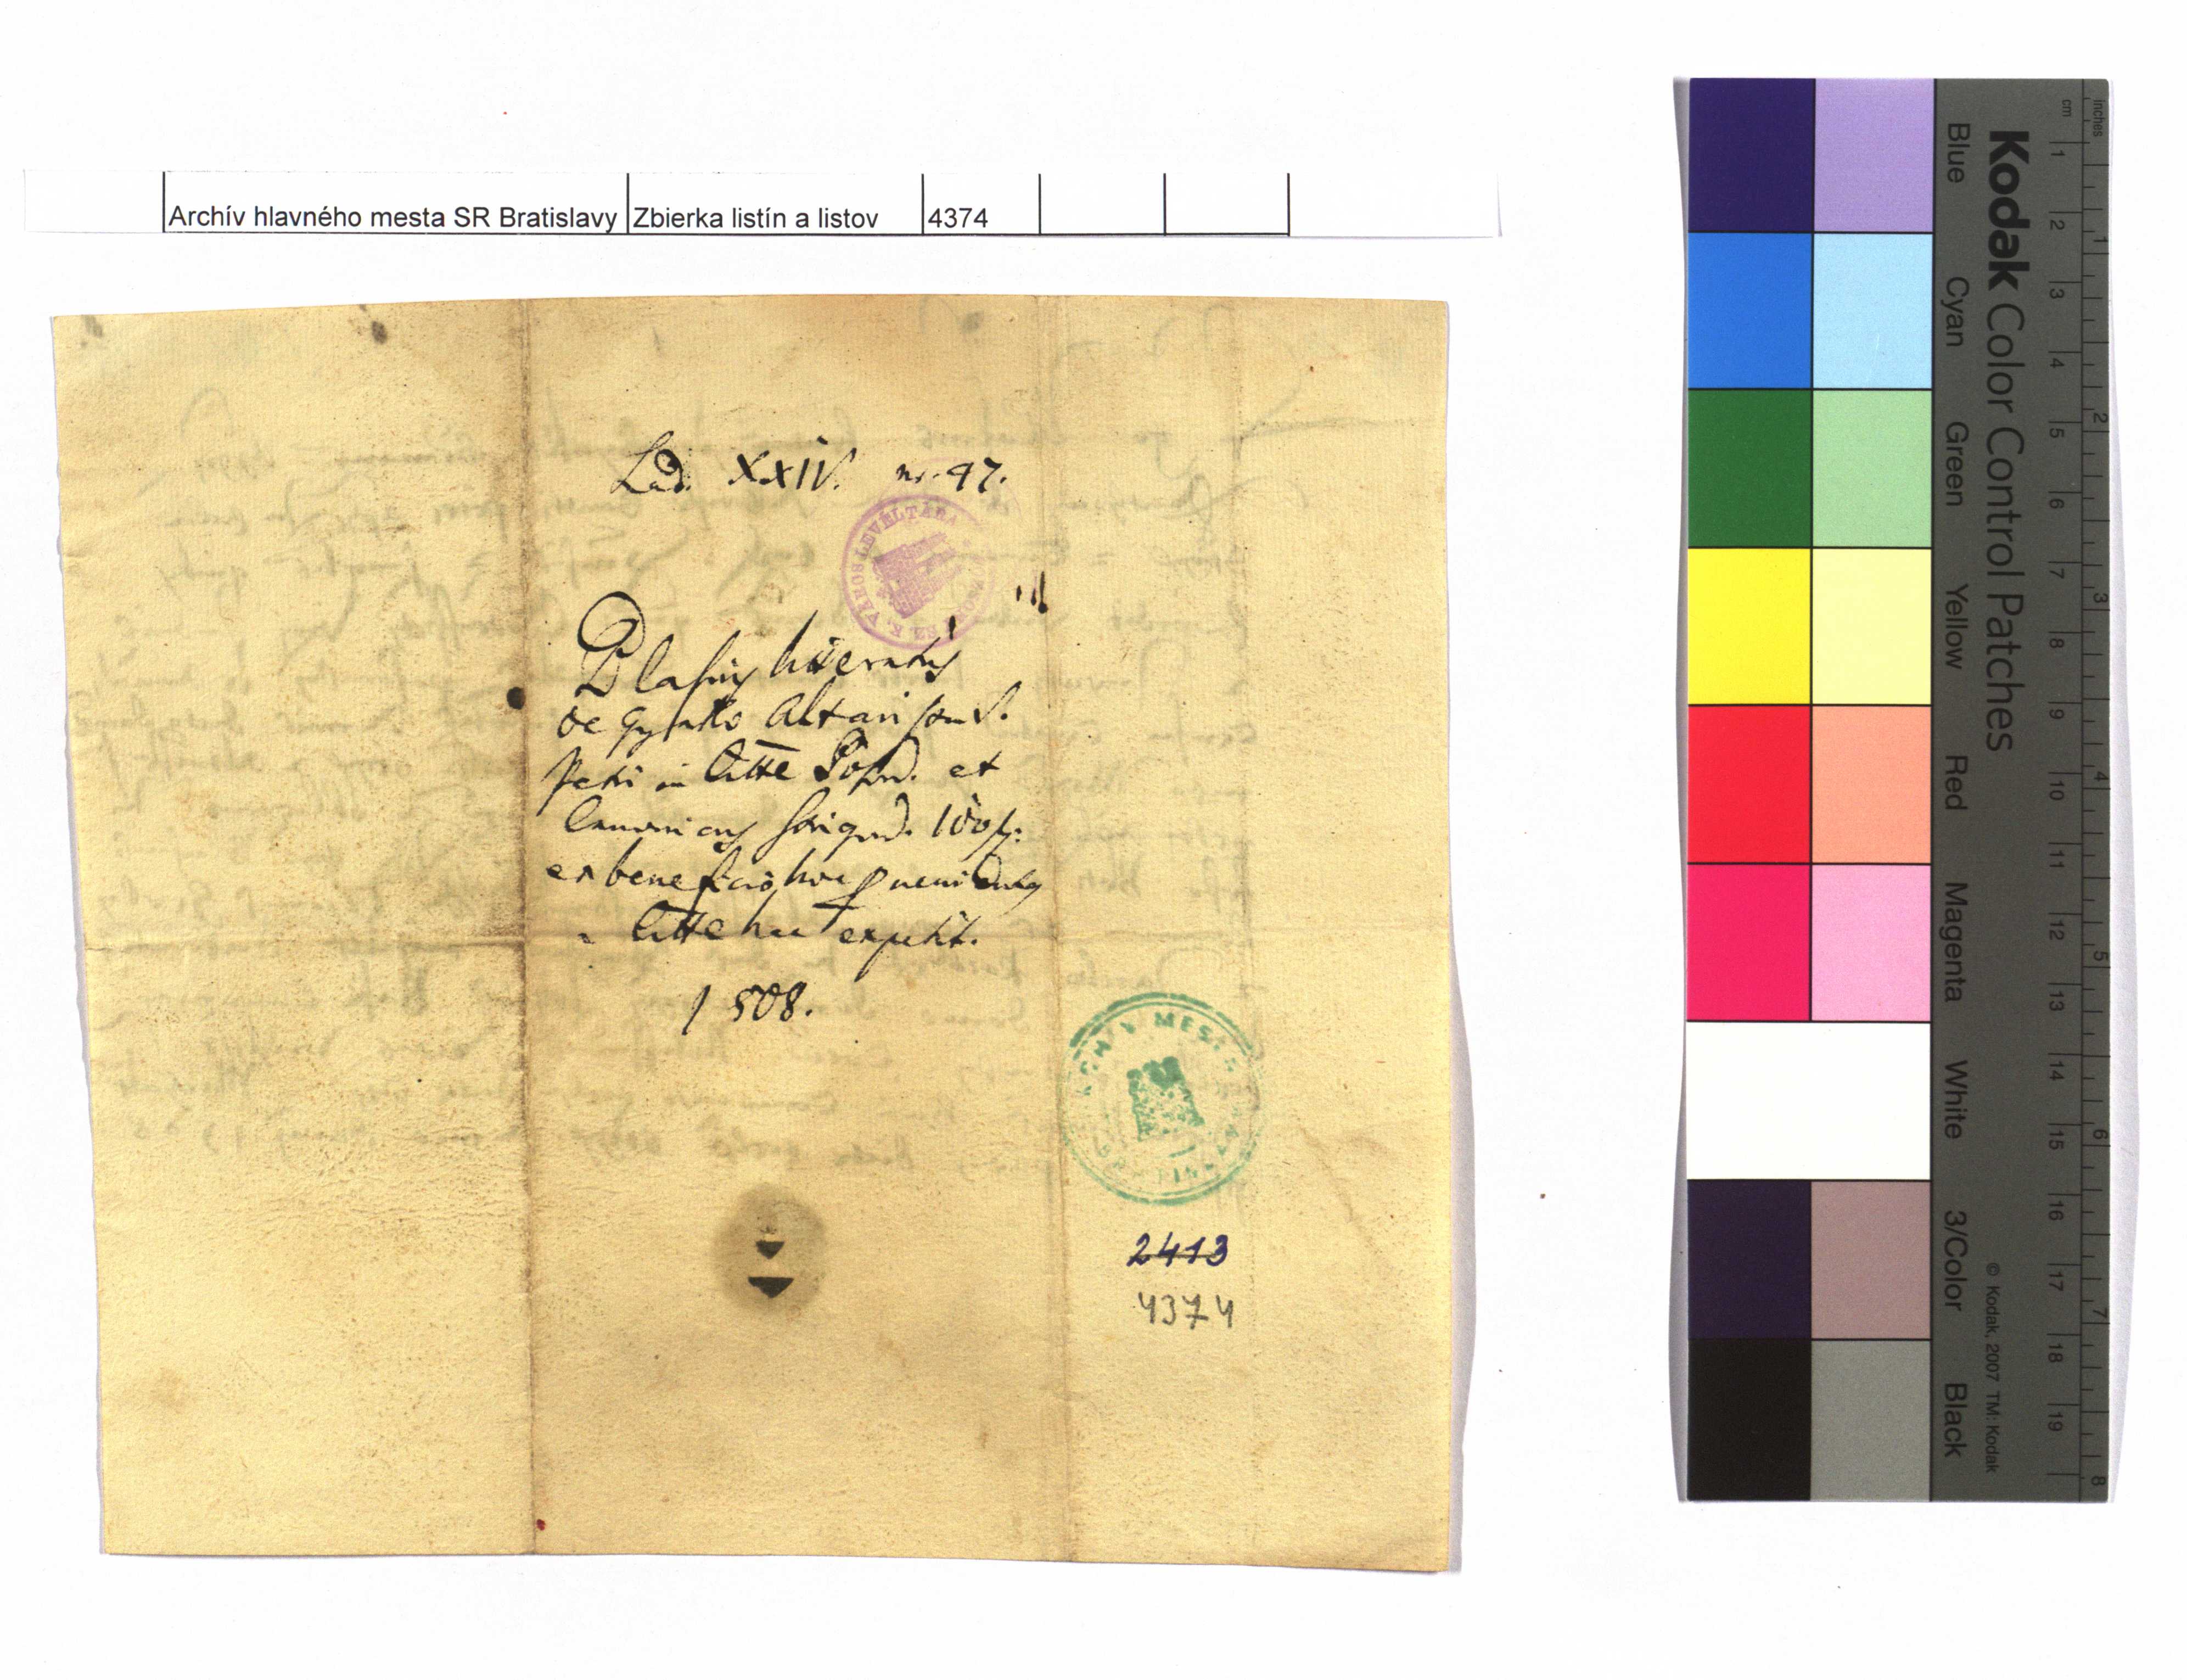 Archív hlavného mesta SR Bratislavy Zbierka listín a listov 4374
Lad. XXIV. nr. 97.
VÁROS LEVÉLTÁRA
Blasius litteratus
de Altari
Petri in Citte Poson. et
Canonicus 100 f:
ex beneficio hoc
a Citte hac expetit.
1508.
ARCHÍV MESTA
BRATISLAVA
2413
4374
Kodak Color Control Patches
Blue Cyan Green Yellow Red Magenta White 3/Color Black
© Kodak, 2007 TM: Kodak
inches 1 2 3 4 5 6 7 8
cm 1 2 3 4 5 6 7 8 9 10 11 12 13 14 15 16 17 18 19